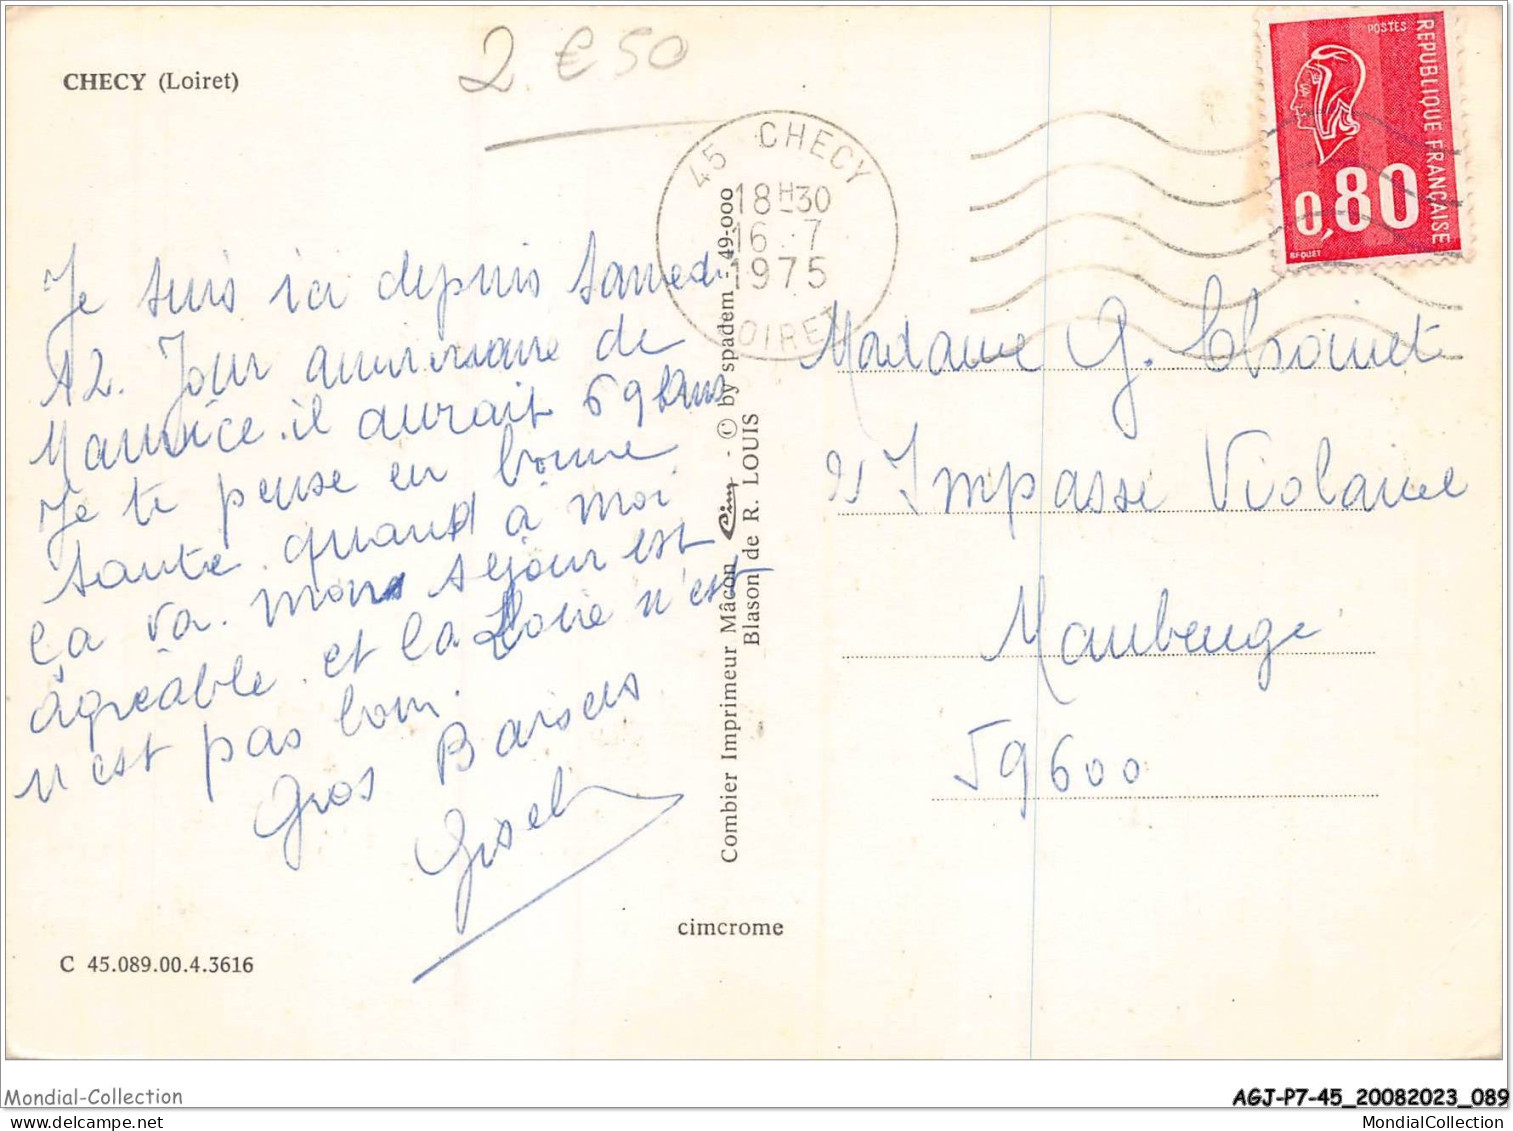 CHECY (Loiret)
2 € 50
45 CHECY
18H30
16 7
1975
LOIRET
POSTES
REPUBLIQUE FRANÇAISE
0,80
BEQUET
Je suis ici depuis samedi
12. Jour anniversaire de
Maurice. il aurait 69 ans
Je te pense en bonne
santé. quand à moi
ça va. mon séjour est
agréable. et la Loire n'est
n'est pas loin.
Gros Baisers
Gisel
Madame G.
21 Impasse Violaine
Maubeuge
59600
Combier Imprimeur Mâcon Cim - © by spadem - 49-000
Blason de R. LOUIS
cimcrome
C 45.089.00.4.3616
Mondial-Collection
AGJ-P7-45_20082023_089
MondialCollection